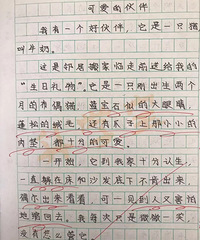 可爱的伙伴
我有一个好伙伴,它是一只猫
叫牛奶。
这是邻居搬家临走前送给我的
“生日礼物”。它是一只刚出生两个
月的布偶猫。蓝宝石似的大眼睛,
蓬松的绒毛,还有爪子上那小小的
肉垫,都十分的可爱。
一开始,它到我家十分认生,
一直躲在床和沙发底下不肯出来,
偶尔出来看看,可一见到人又害怕
地缩回去。我每次只是微微一笑,
没有怎么管它